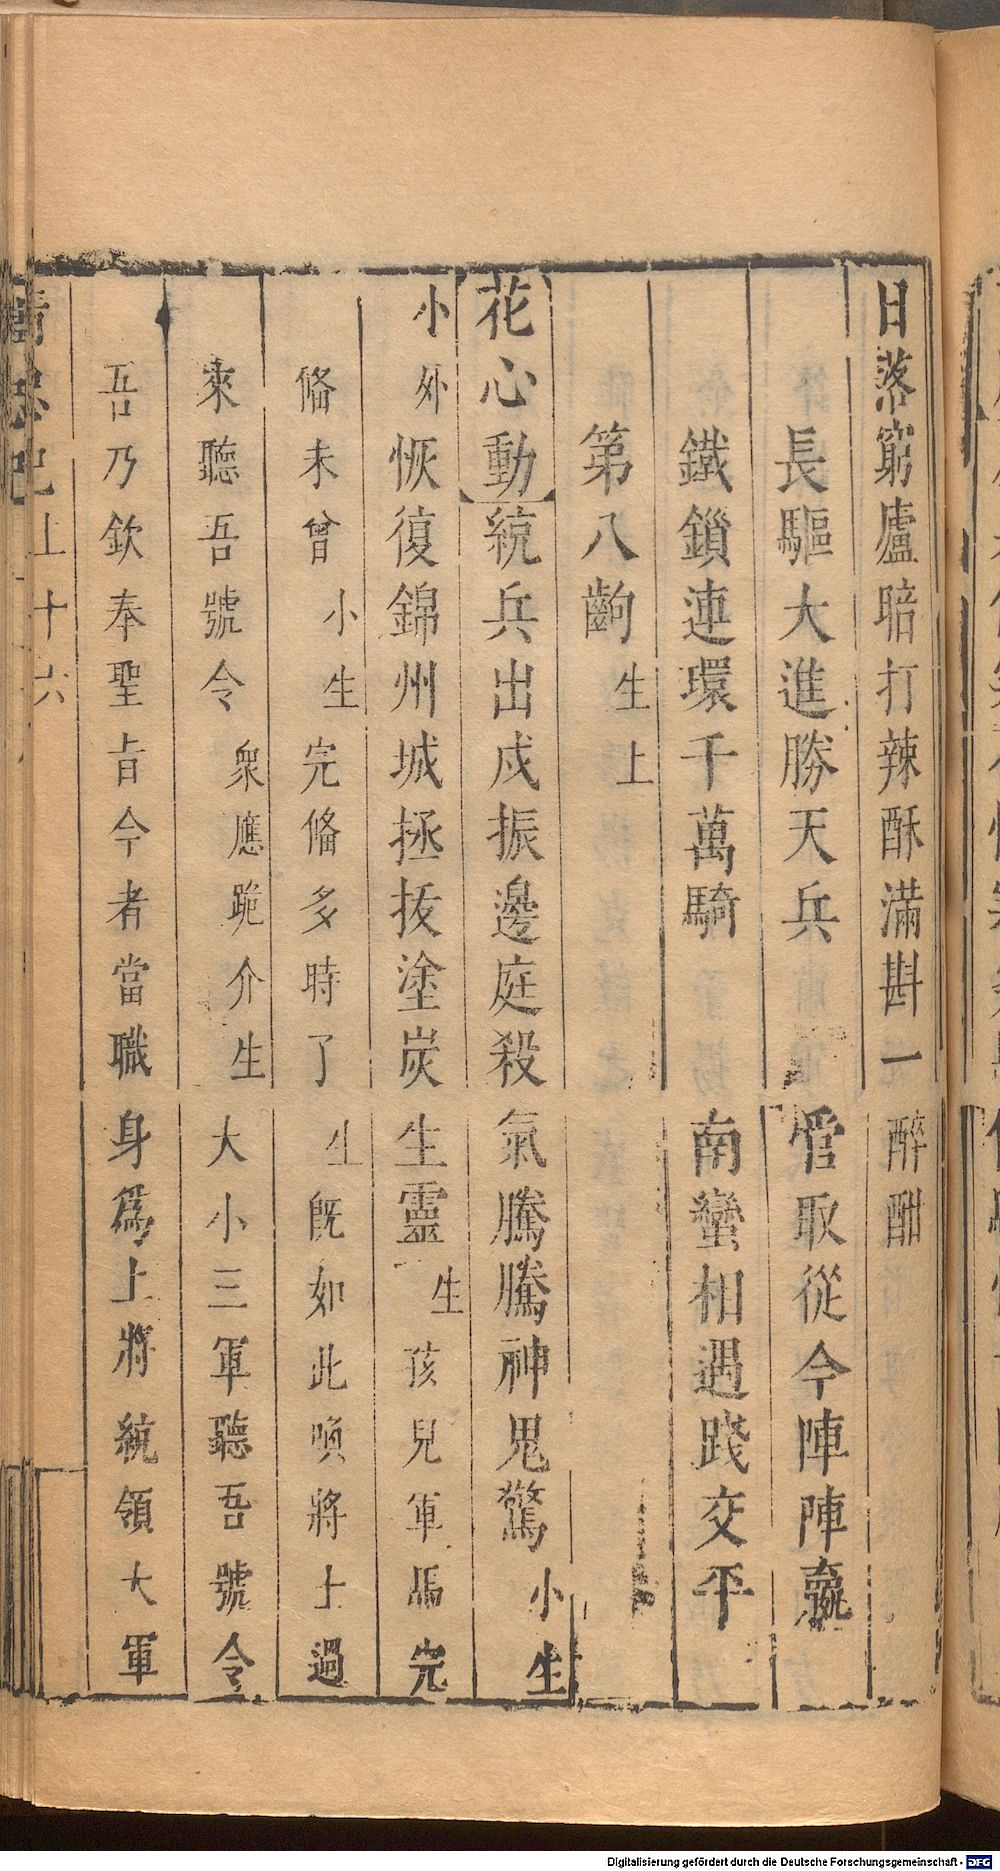 日落窮廬㫲打辣酥滿斟一醉酣
長驅大進勝天兵　管取從今陣陣贏
鐵鎖連環千萬騎　南蠻相遇踐交平
第八齣　生上
花心動　統兵出戍振邊庭殺氣騰騰神鬼驚　小生
小外恢復錦州城拯㧞塗炭生靈　生　孩兒軍馬完
俻未曾　小生　完俻多時了　生　旣如此喚將士過
來聽吾號令　衆應跪介生　大小三軍聽吾號令
吾乃欽奉聖旨今者當職身爲上將統領大軍
上　十六
Digitalisierung gefördert durch die Deutsche Forschungsgemeinschaft - DFG